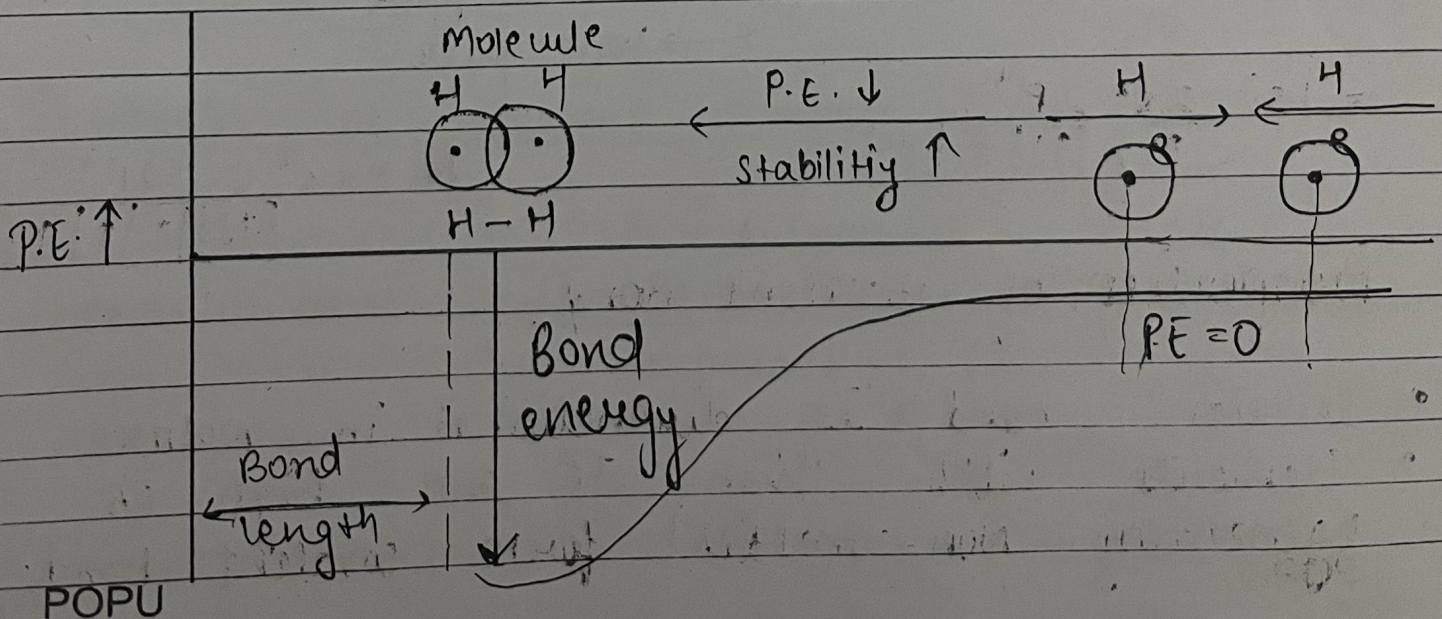 Molecule
H H
P.E. ↓
H H
stability ↑
H – H
P.E. ↑
Bond
energy
PE = 0
Bond
length
POPU